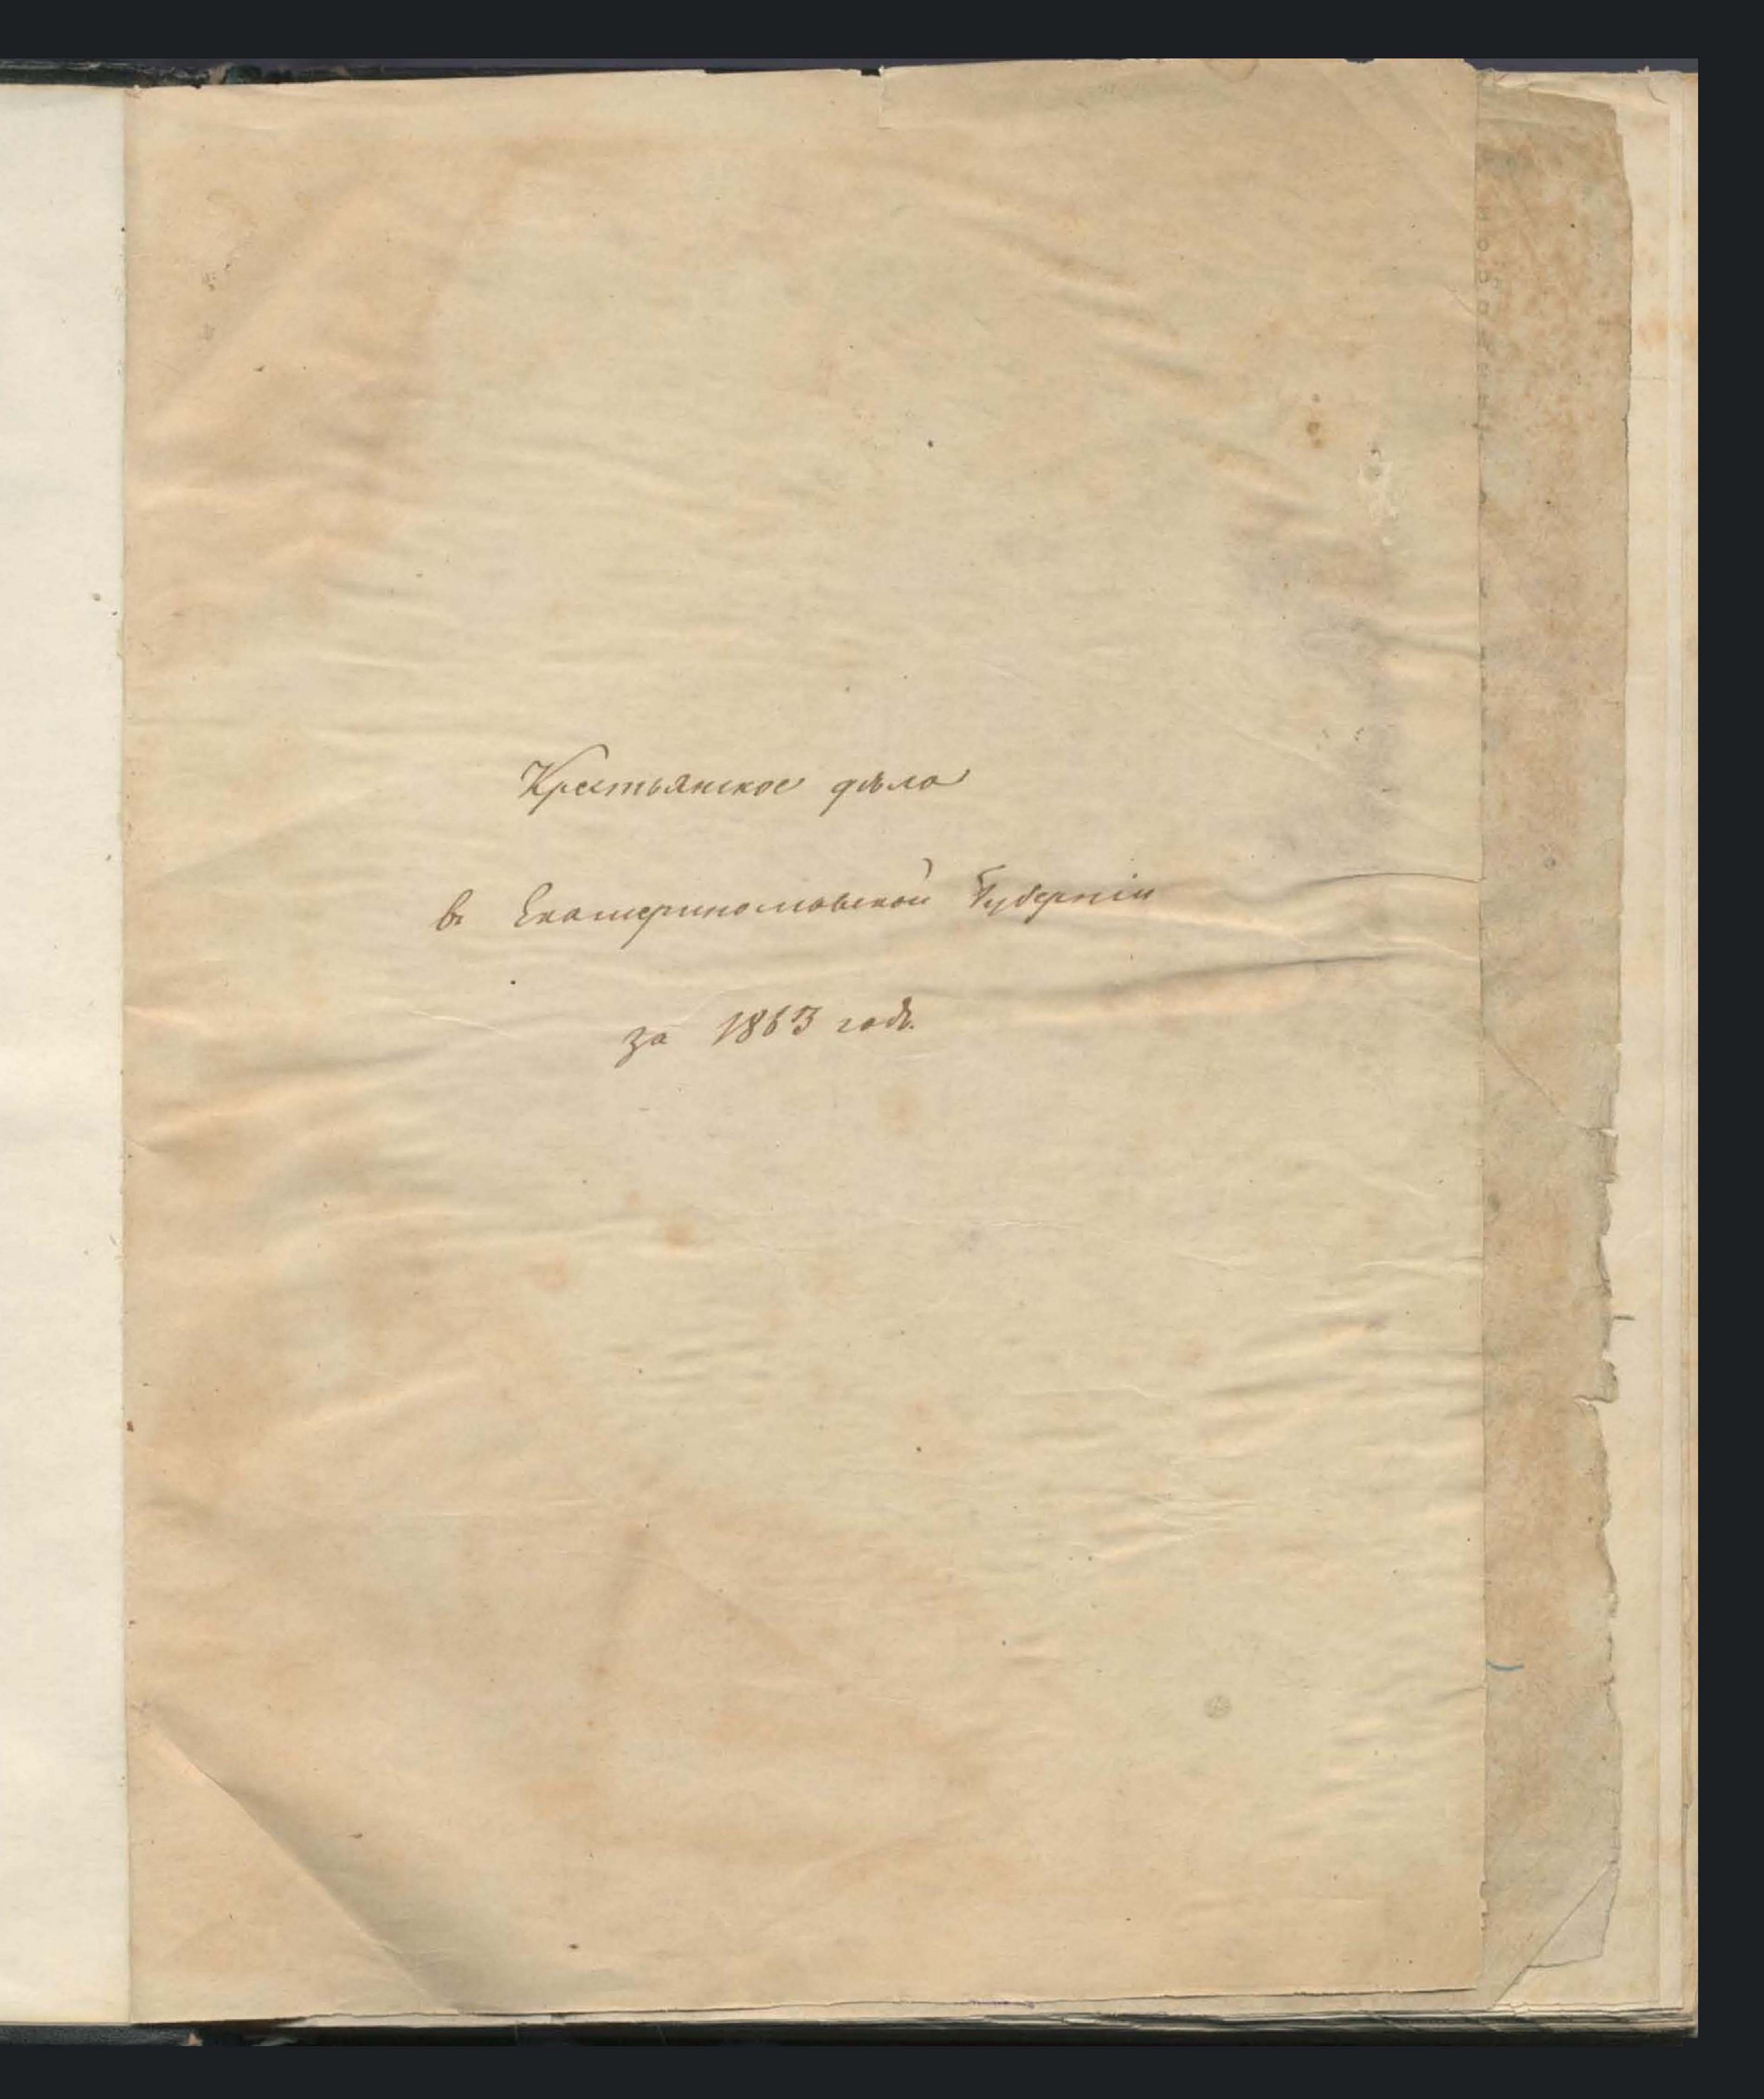 Крестьянское дѣло
въ Екатеринославской Губерніи
за 1863 годъ.